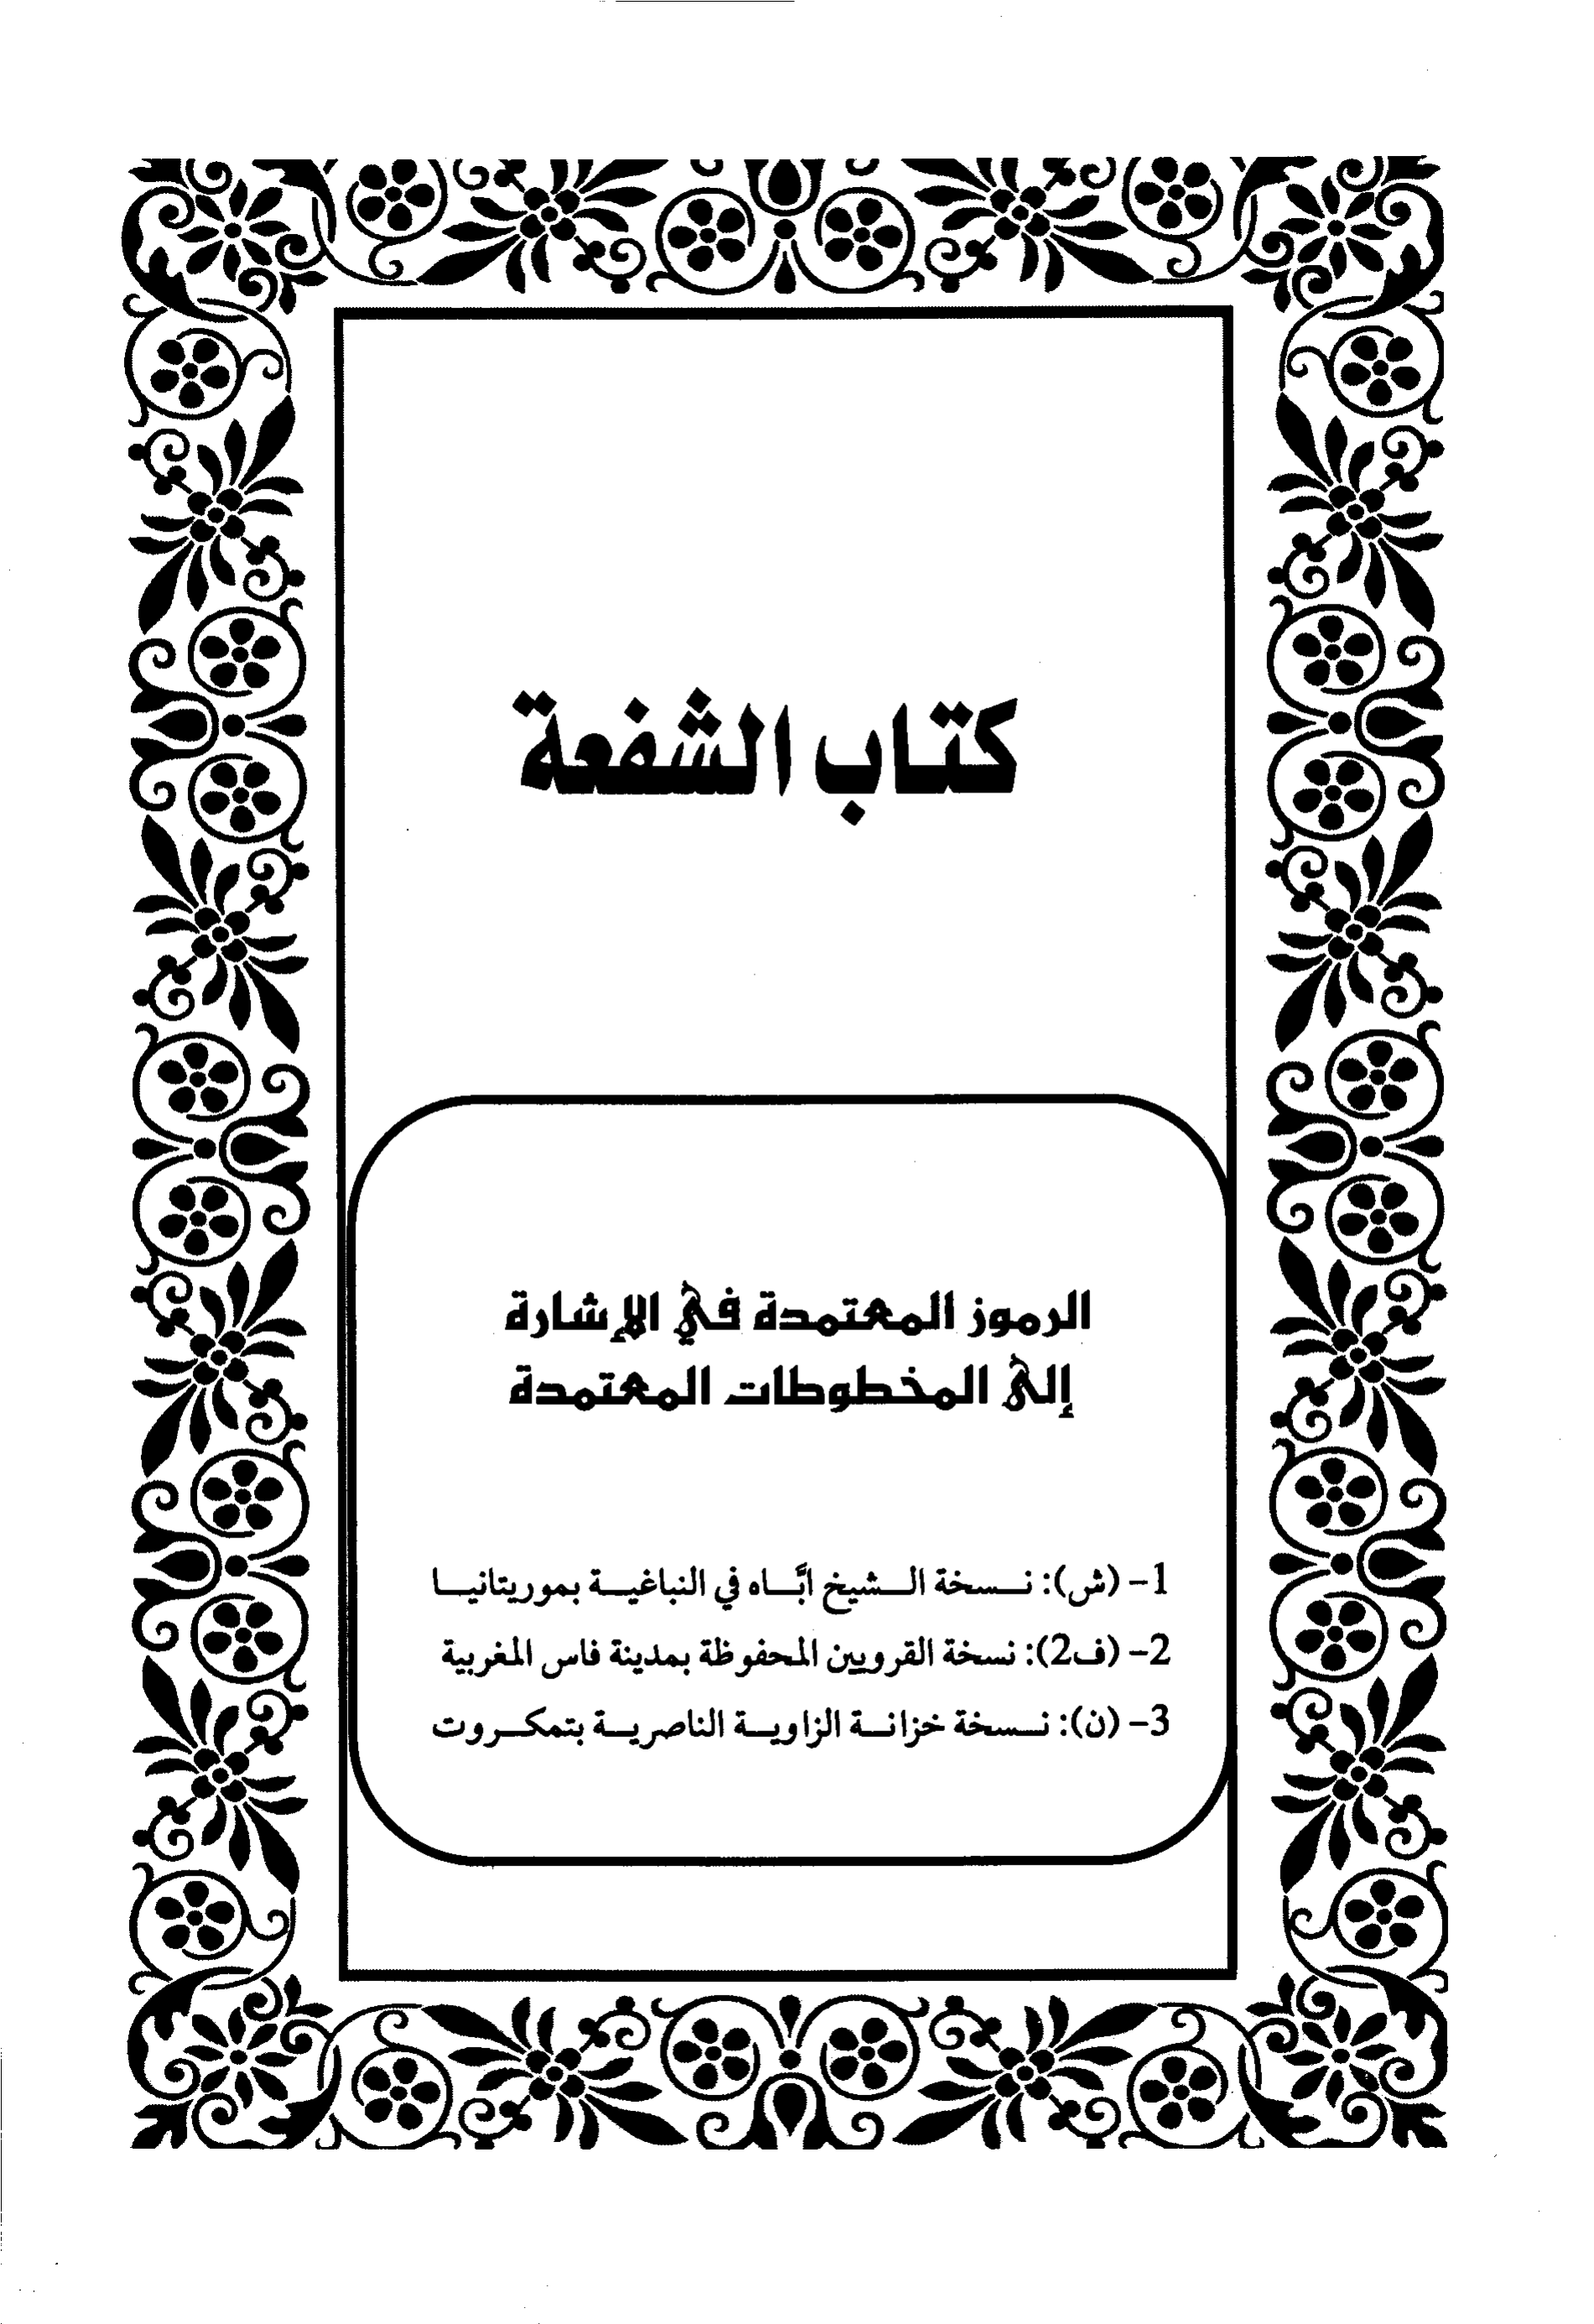 كتاب الشفعة
الرموز المعتمدة في الإشارة
إلى المخطوطات المعتمدة
1- (ش): نسخة الشيخ ابَّاه في النباغية بموريتانيا
2- (ف2): نسخة القرويين المحفوظة بمدينة فاس المغربية
3- (ن): نسخة خزانة الزاوية الناصرية بتمكروت